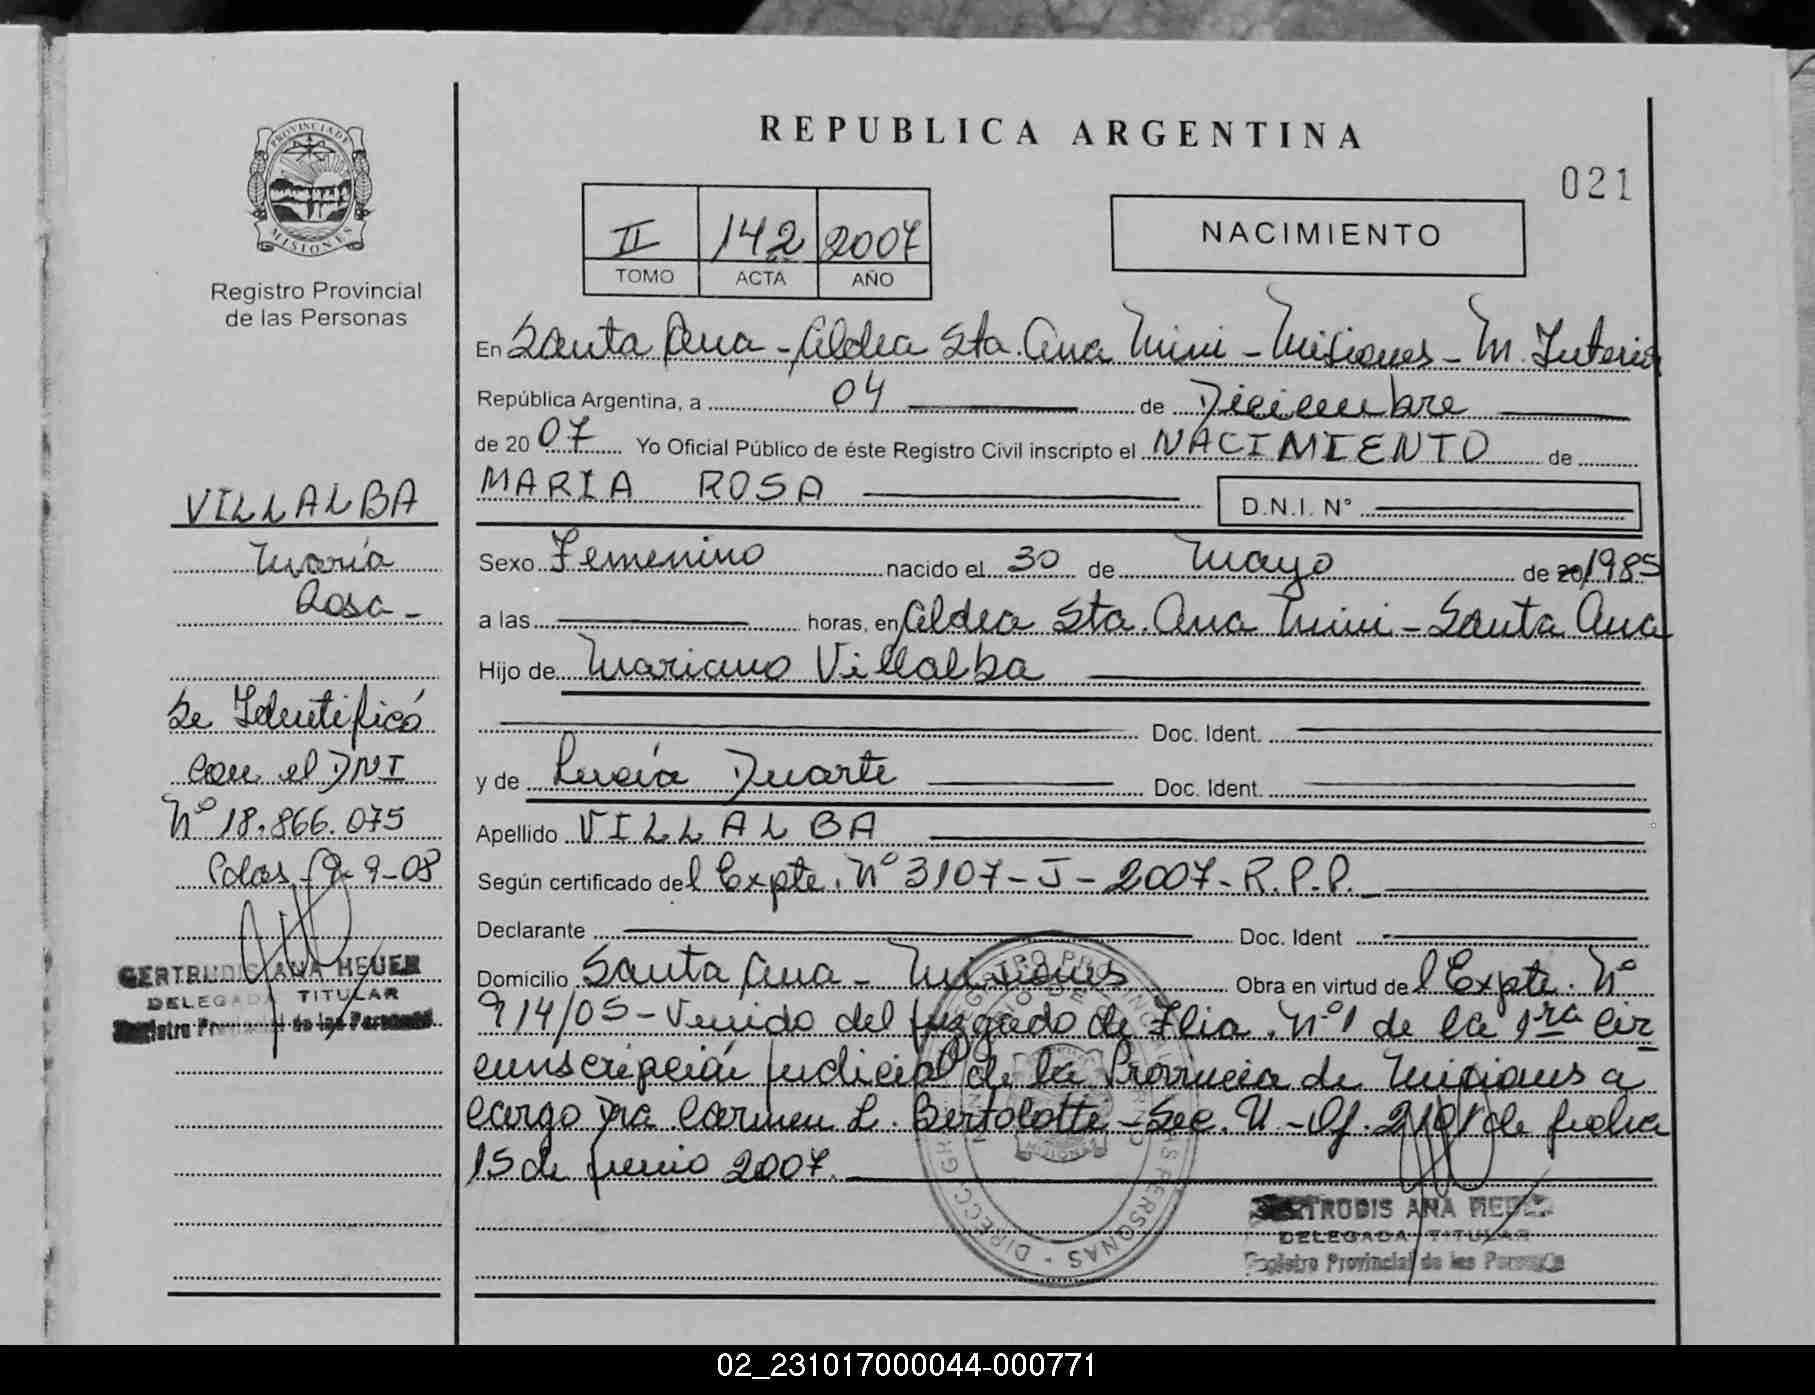 REPUBLICA ARGENTINA
021
PROVINCIA DE
MISIONES
Registro Provincial
de las Personas
II 142 2007
TOMO ACTA AÑO
NACIMIENTO
En Santa Ana - Aldea Sta. Ana Mini - Misiones - M. Interior
República Argentina, a 04 de Diciembre
de 2007 Yo Oficial Público de éste Registro Civil inscripto el NACIMIENTO de
MARIA ROSA D.N.I. N°
Sexo Femenino nacido el 30 de Mayo de 20/1985
a las horas, en Aldea Sta. Ana Mini - Santa Ana
Hijo de Mariano Villalba
Doc. Ident.
y de Lucía Duarte Doc. Ident.
Apellido VILLALBA
Según certificado del Expte. N° 3107-J-2007-R.P.P.
Declarante Doc. Ident
Domicilio Santa Ana - Misiones Obra en virtud del Expte. N°
914/05 - Venido del Juzgado de Flia. N°1 de la 1ra Cir
cunscripción judicial de la Provincia de Misiones a
Cargo Dra Carmen L. Bertolotte - Sec. U - Of. 2101 de fecha
15 de junio 2007.
VILLALBA
María
Rosa -
Se Identificó
con el DNI
N° 18.866.075
Pdas, 9-9-08
GERTRUDIS ANA HEUER
DELEGADA TITULAR
Registro Provincial de las Personas
GERTRUDIS ANA HEUER
DELEGADA TITULAR
Registro Provincial de las Personas
02_231017000044-000771